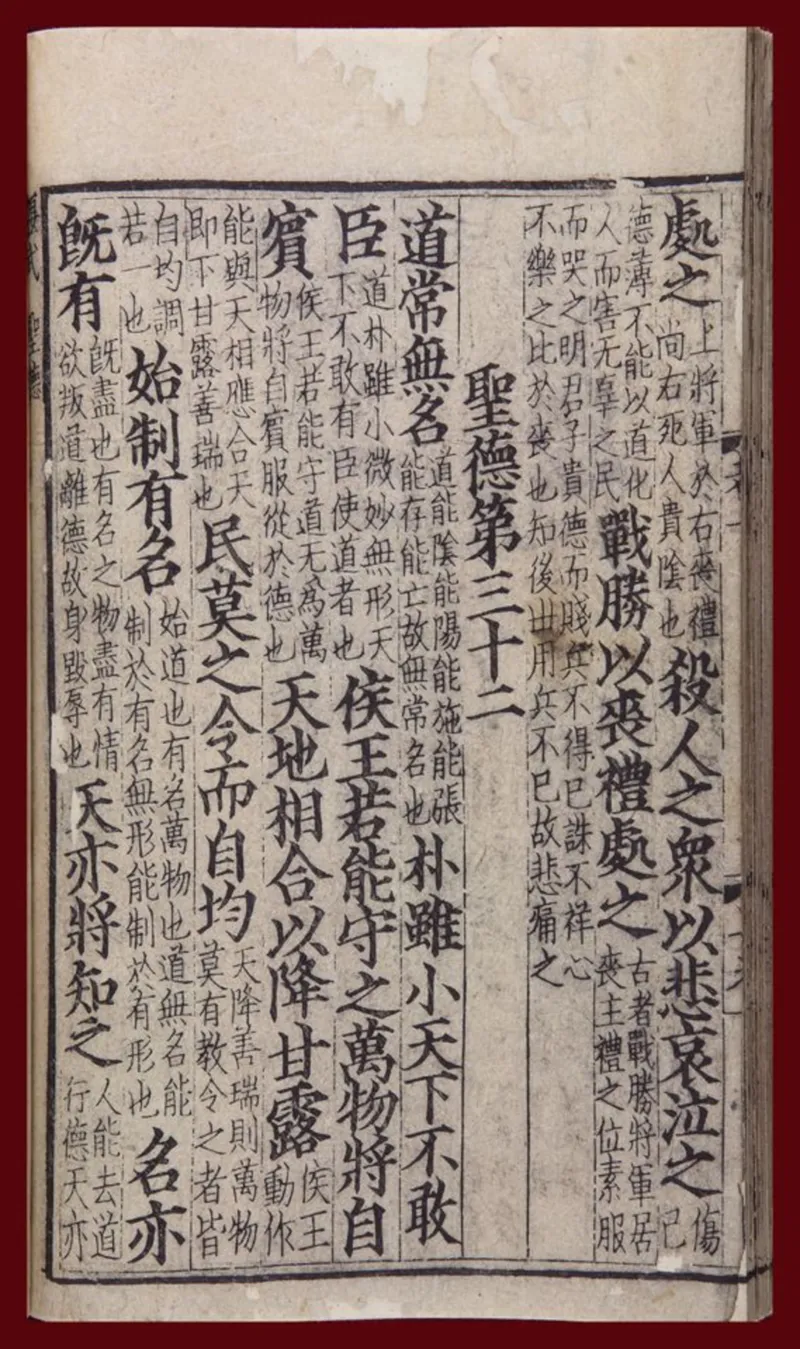 處之上將軍於右喪禮尚右死人貴陰也殺人之衆以悲哀泣之傷己
德薄不能以道化人而害无辜之民戰勝以喪禮處之古者戰勝將軍居喪主禮之位素服
而哭之明君子貴德而賤兵不得巳誅不祥心不樂之比於喪也知後丗用兵不巳故悲痛之
聖德第三十二
道常無名道能陰能陽能施能張能存能亡故無常名也朴雖小天下不敢
臣道朴雖小微妙無形天下不敢有臣使道者也侯王若能守之萬物將自
賔侯王若能守道无為萬物將自賔服從於德也天地相合以降甘露侯王動作
能與天相應合天即下甘露善瑞也民莫之令而自均天降善瑞則萬物莫有教令之者皆
自均調若一也始制有名始道也有名萬物也道無名能制於有名無形能制於有形也名亦
旣有旣盡也有名之物盡有情欲叛道離德故身毀辱也天亦將知之人能去道行德天亦
聖德